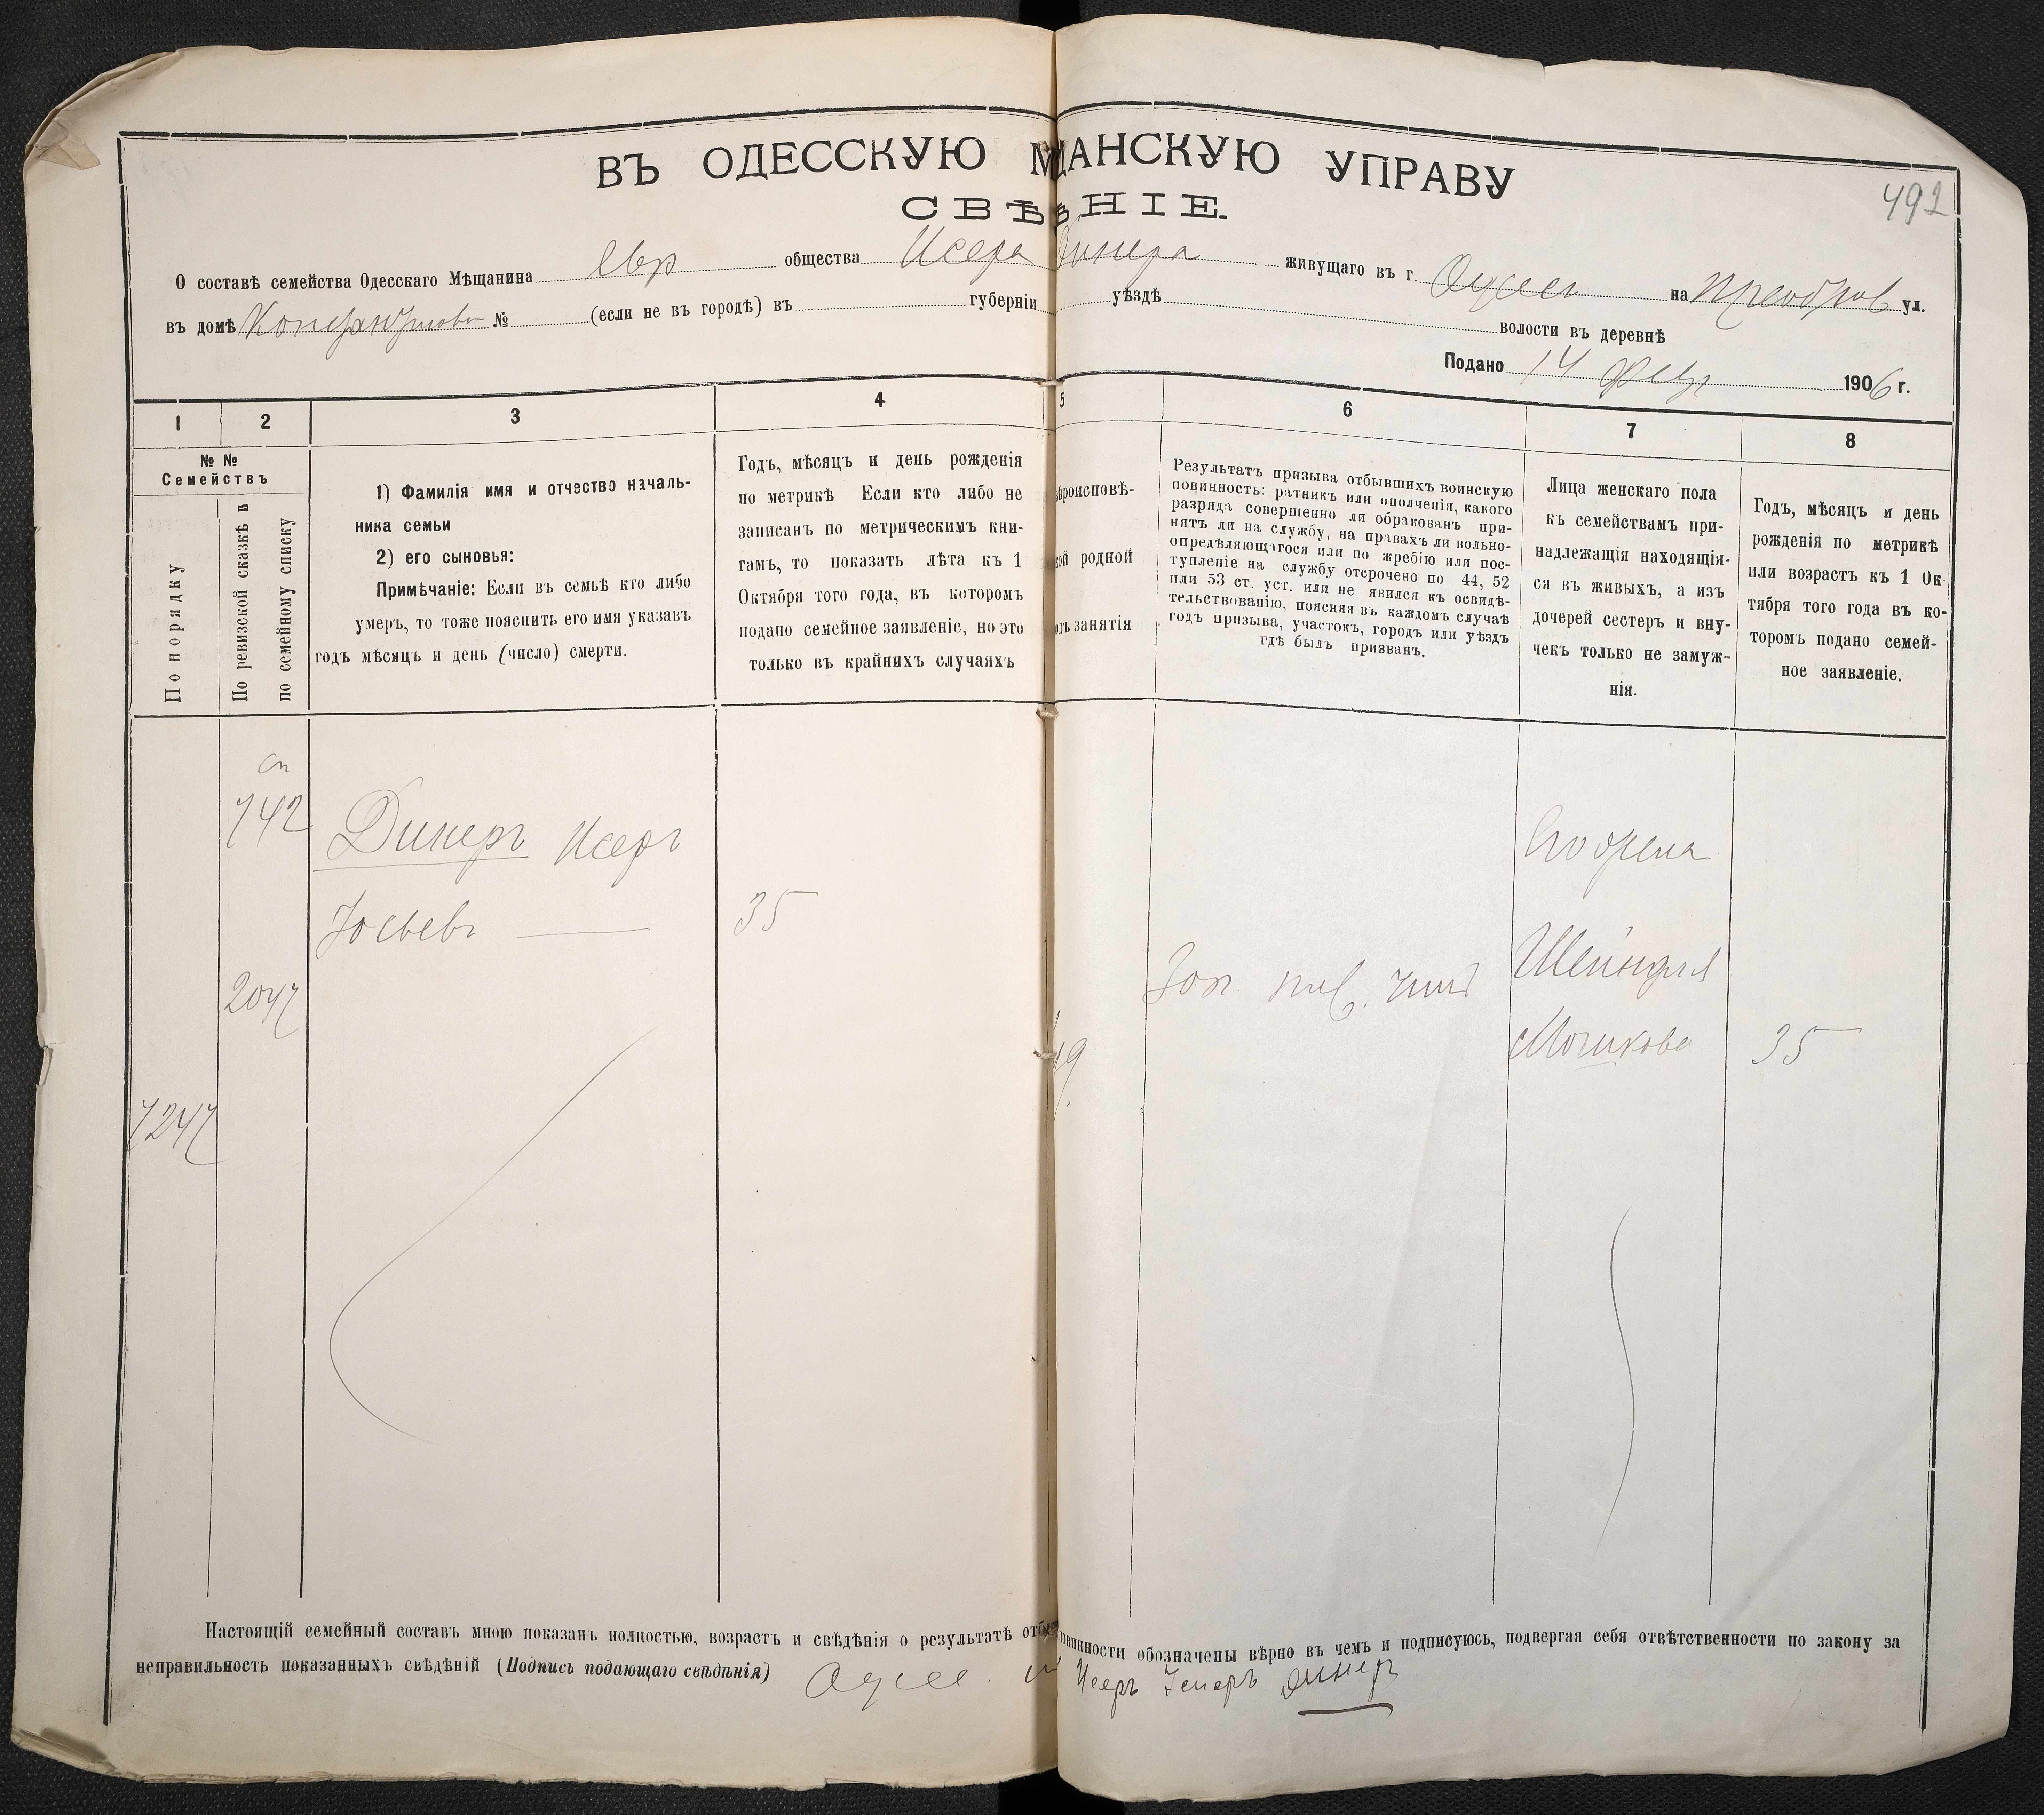 ВЪ ОДЕССКУЮ М ЩАНСКУЮ УПРАВУ
СВѢ НІЕ.
492
О составѣ семейства Одесскаго Мѣщанина Евр общества Исера Динера живущаго въ г. Одессѣ на Преобрав ул.
въ домѣ № (если не въ городѣ) въ губерніи уѣздѣ волости въ деревнѣ
Подано 14 Февр 1906 г.
1 2 3 4 5 6 7 8
№ №
Семействъ
По порядку
По ревизской сказкѣ и
по семейному списку
1) Фамилія имя и отчество началь-
ника семьи
2) его сыновья:
Примѣчаніе: Если въ семьѣ кто либо
умеръ, то тоже пояснить его имя указавъ
годъ мѣсяцъ и день (число) смерти.
Годъ, мѣсяцъ и день рожденія
по метрикѣ Если кто либо не
записанъ по метрическимъ кни-
гамъ, то показать лѣта къ 1
Октября того года, въ которомъ
подано семейное заявленіе, но это
только въ крайнихъ случаяхъ
ѣроисповѣ-
ой родной
дъ занятія
Результатъ призыва отбывшихъ воинскую
повинность: ратникъ или ополченія, какого
разряда совершенно ли обракованъ при-
нятъ ли на службу, на правахъ ли вольно-
опредѣляющагося или по жребію или пос-
тупленіе на службу отсрочено по 44, 52
или 53 ст. уст. или не явился къ освидѣ-
тельствованію, поясняя въ каждомъ случаѣ
годъ призыва, участокъ, городъ или уѣздъ
гдѣ былъ призванъ.
Лица женскаго пола
къ семействамъ при-
надлежащія находящія-
ся въ живыхъ, а изъ
дочерей сестеръ и вну-
чекъ только не замуж-
нія.
Годъ, мѣсяцъ и день
рожденія по метрикѣ
или возрастъ къ 1 Ок-
тября того года въ ко-
торомъ подано семей-
ное заявленіе.
сп
742
Динеръ Исеръ
Іосьевъ 35
2047
7247
Его жена
Шейндля
Мошкова 35
Настоящій семейный составъ мною показанъ полностью, возрастъ и свѣдѣнія о результатѣ отбы повинности обозначены вѣрно въ чемъ и подписуюсь, подвергая себя отвѣтственности по закону за
неправильность показанныхъ свѣдѣній (Подпись подающаго свѣдѣнія) Одес. Исеръ Динеръ